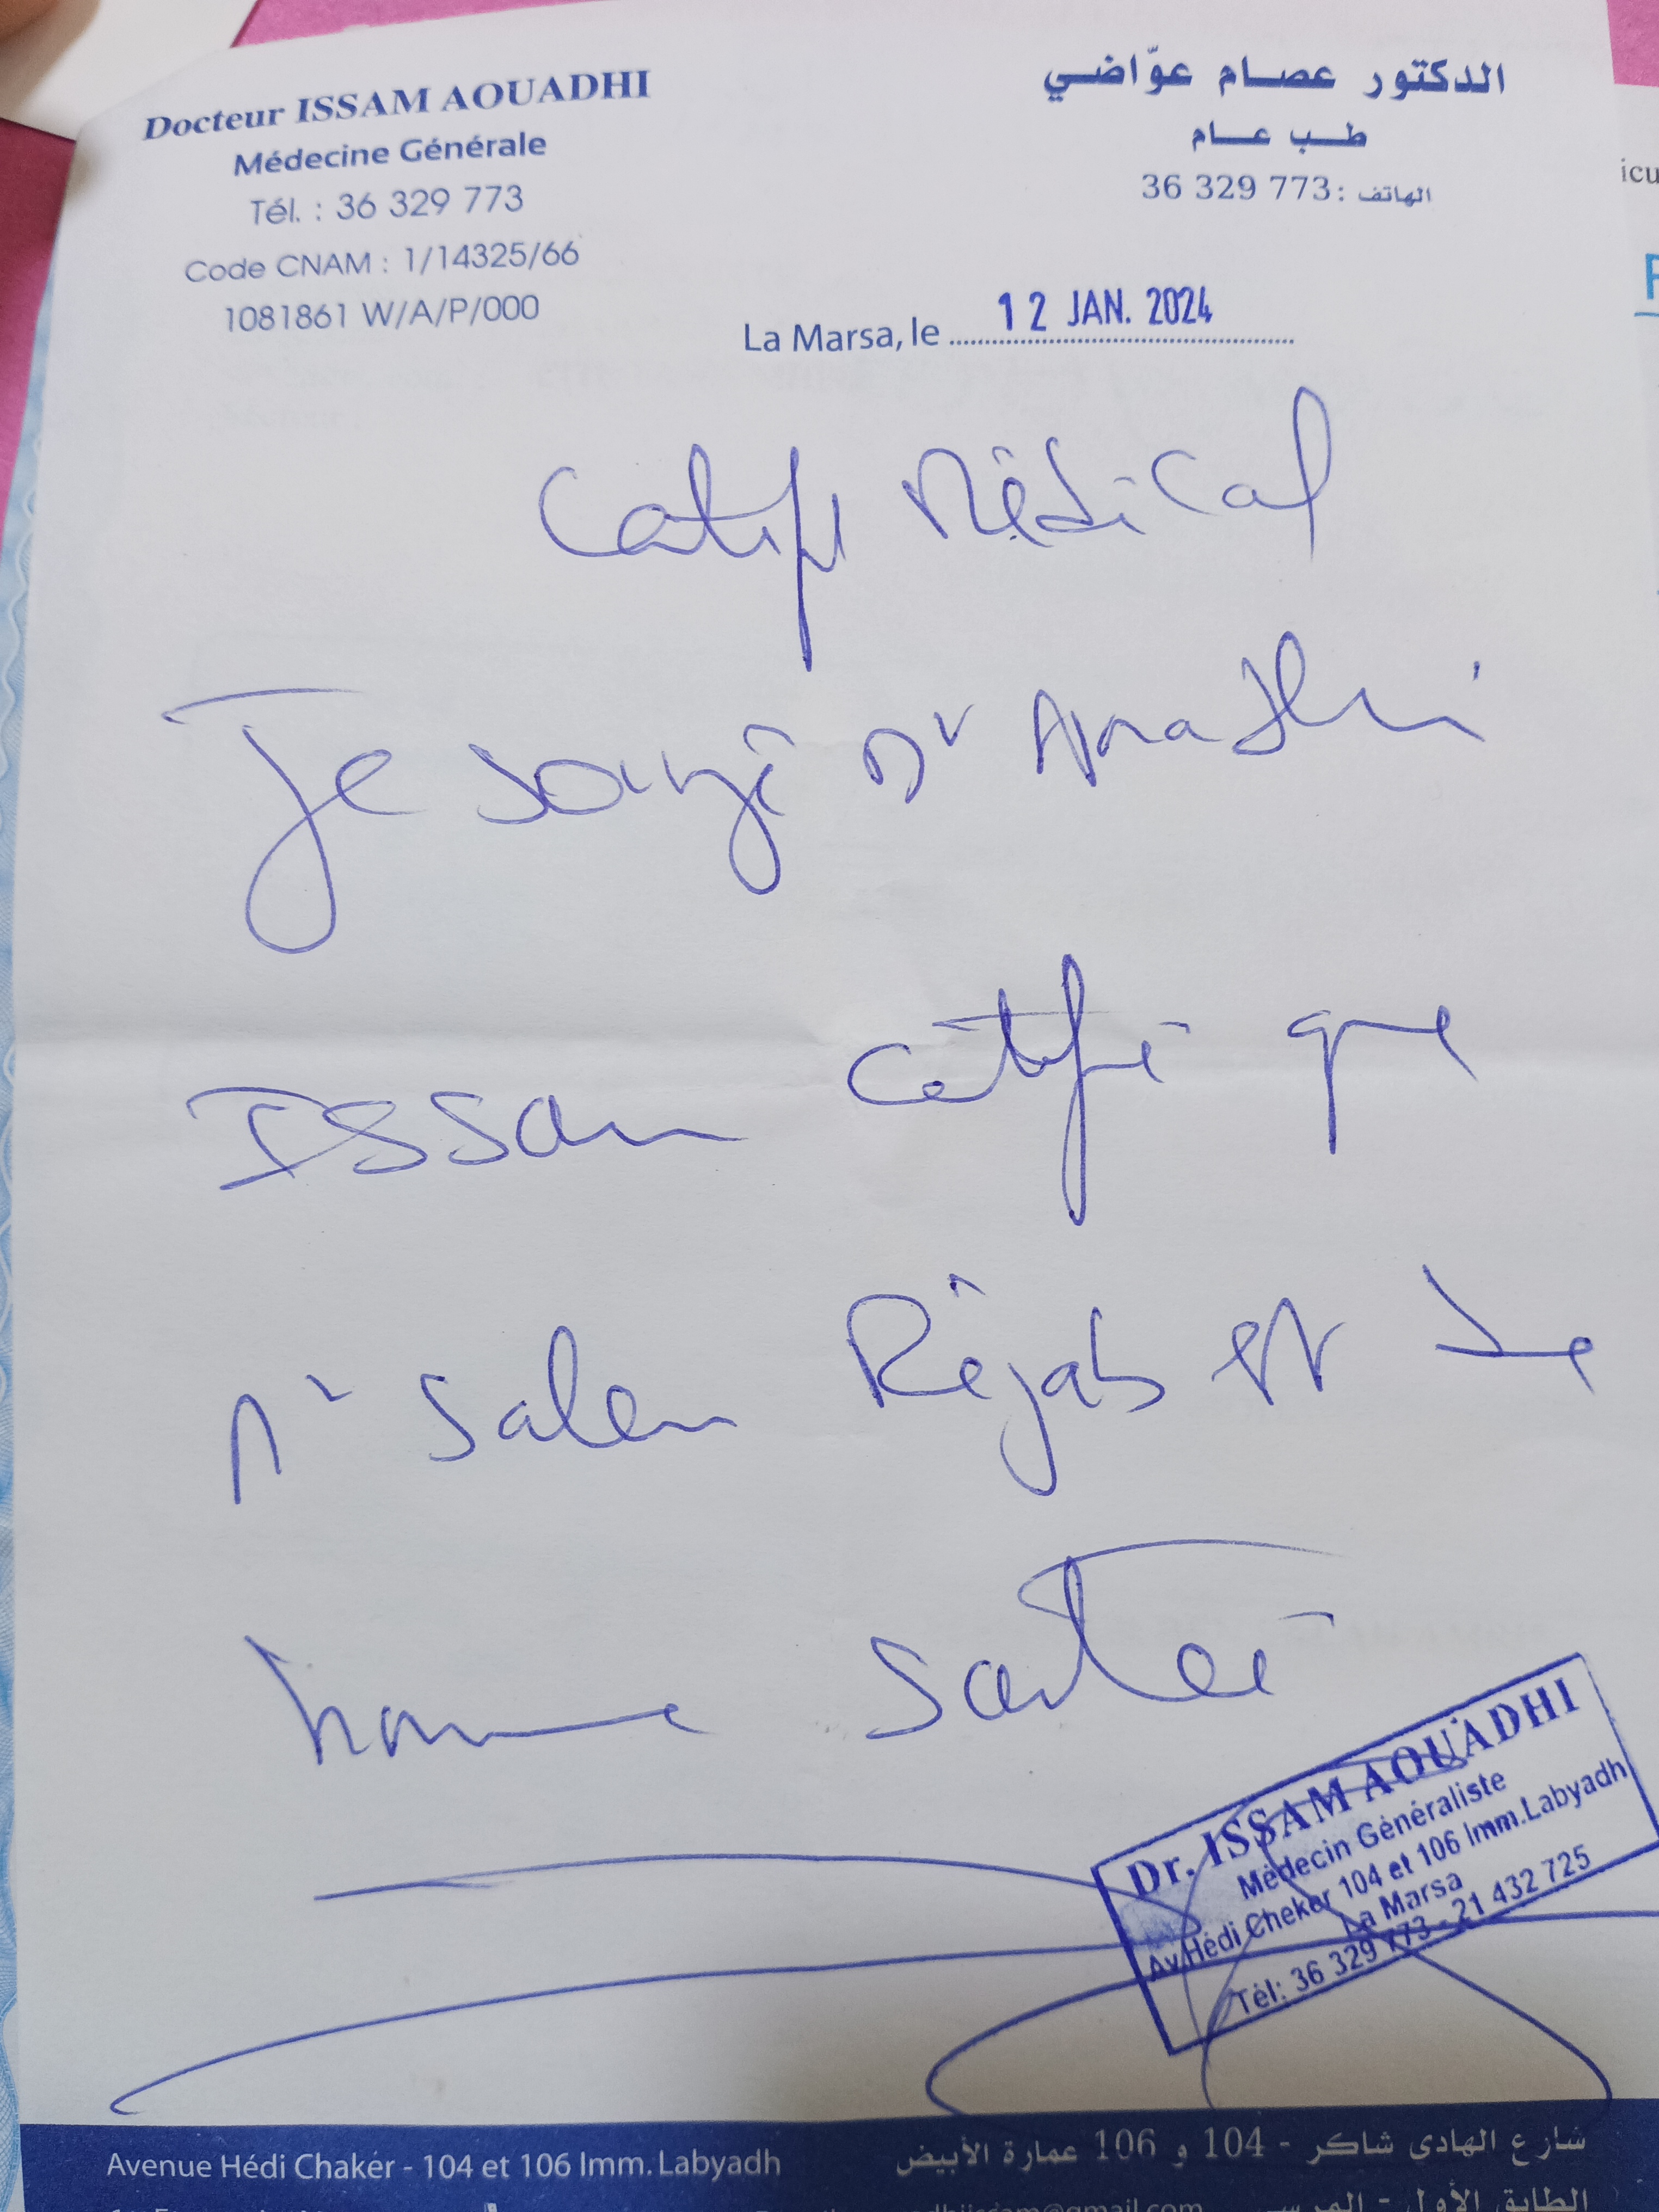 Docteur ISSAM AOUADHI
Médecine Générale
Tél. : 36 329 773
Code CNAM : 1/14325/66
1081861 W/A/P/000
الدكتور عصام عوّاضي
طب عام
الهاتف : 36 329 773
La Marsa, le 12 JAN. 2024
Médical
Je Dr Aouadhi
Issam certifie que
Mr Salem Réjab est de
bonne Santé
Dr. ISSAM AOUADHI
Médecin Généraliste
Av.Hédi Cheker 104 et 106 Imm.Labyadh
La Marsa
Tél: 36 329 773 - 21 432 725
Avenue Hédi Chakér - 104 et 106 Imm. Labyadh
شارع الهادي شاكر - 104 و 106 عمارة الأبيض
الطابق الأول - المرسى
icu